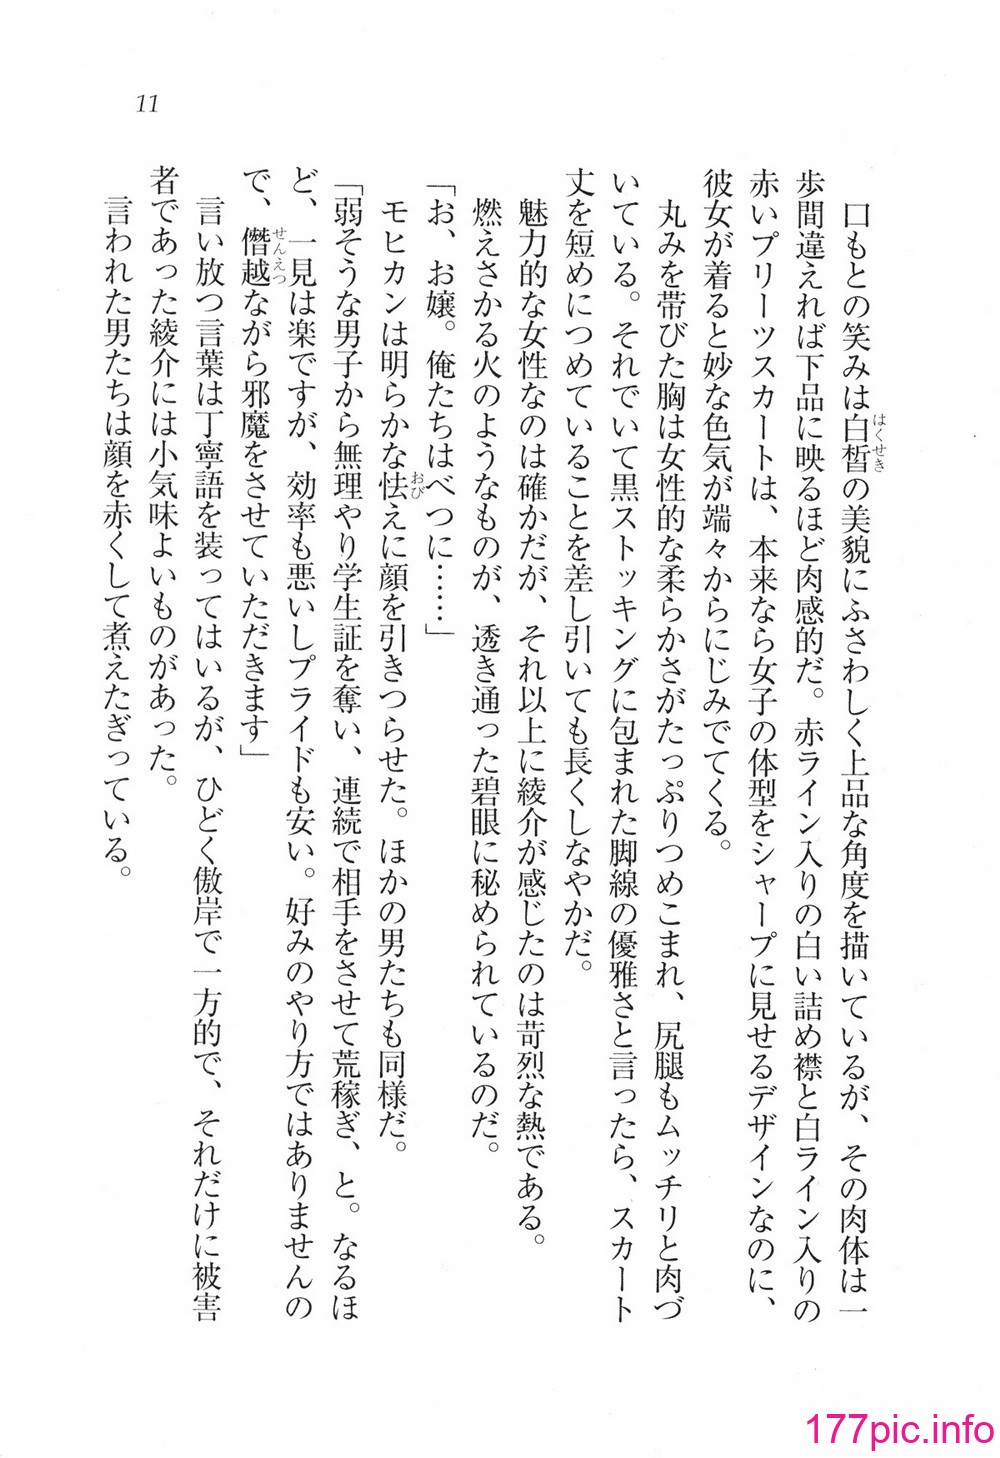 11
口もとの笑みは白皙の美貌にふさわしく上品な角度を描いているが、その肉体は一
はくせき
歩間違えれば下品に映るほど肉感的だ。赤ライン入りの白い詰め襟と白ライン入りの
赤いプリーツスカートは、本来なら女子の体型をシャープに見せるデザインなのに、
彼女が着ると妙な色気が端々からにじみでてくる。
丸みを帯びた胸は女性的な柔らかさがたっぷりつめこまれ、尻腿もムッチリと肉づ
いている。それでいて黒ストッキングに包まれた脚線の優雅さと言ったら、スカート
丈を短めにつめていることを差し引いても長くしなやかだ。
魅力的な女性なのは確かだが、それ以上に綾介が感じたのは苛烈な熱である。
燃えさかる火のようなものが、透き通った碧眼に秘められているのだ。
「お、お嬢。俺たちはべつに……」
モヒカンは明らかな怯えに顔を引きつらせた。ほかの男たちも同様だ。
おび
「弱そうな男子から無理やり学生証を奪い、連続で相手をさせて荒稼ぎ、と。なるほ
ど、一見は楽ですが、効率も悪いしプライドも安い。好みのやり方ではありませんの
で、僭越ながら邪魔をさせていただきます」
せんえつ
言い放つ言葉は丁寧語を装ってはいるが、ひどく傲岸で一方的で、それだけに被害
者であった綾介には小気味よいものがあった。
言われた男たちは顔を赤くして煮えたぎっている。
177pic.info